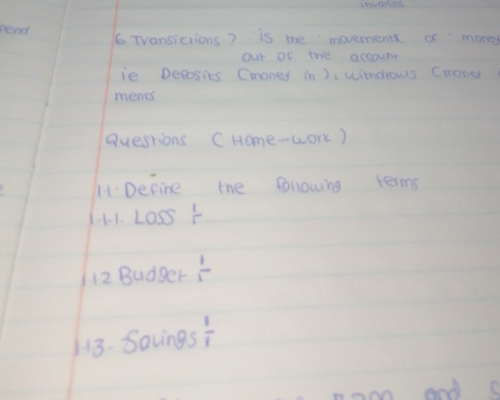 involves
pend
6 Transictions ? is the movements of money
out of the account
ie Deposits (money in), withdrows (money
ments
Questions (Home-work)
1.1. Define the following terms
1.1.1. Loss
1.1.2 Budget
1.1.3. Savings
R200 and